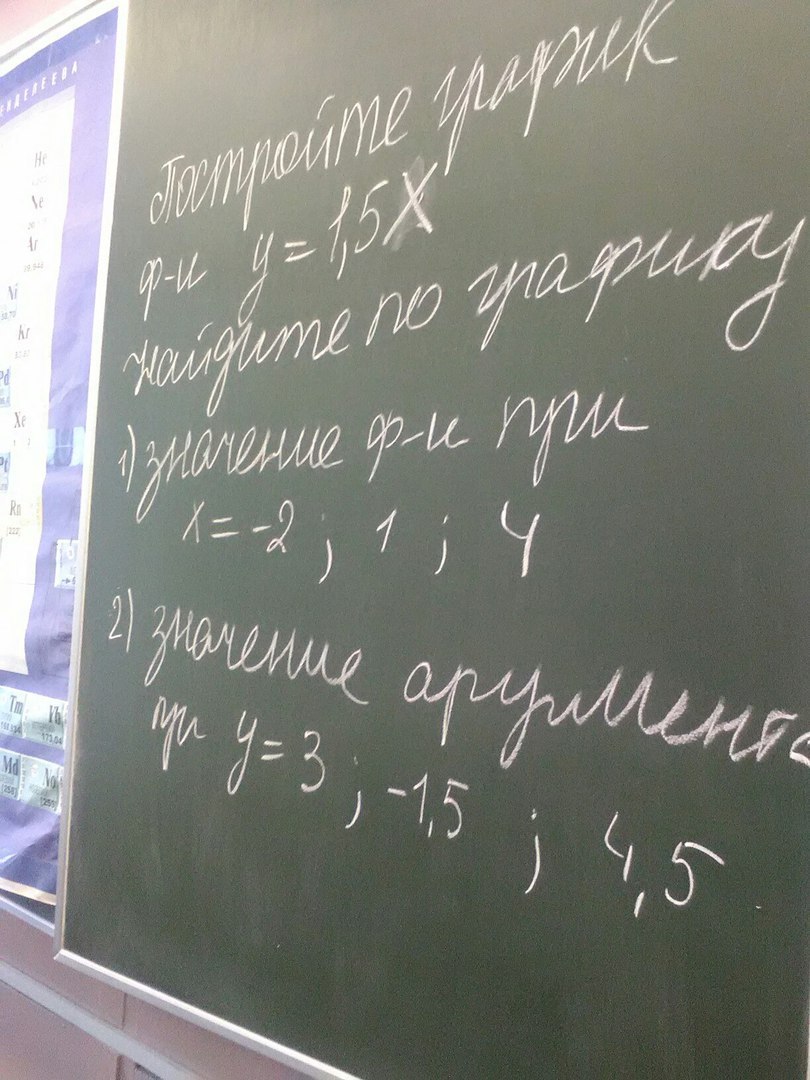 НДЕЛЕЕВА
He
Ne
Ar
Ni
Kr
Pd
Xe
Pt
Rn
[222]
Tm
Yb
173.04
Md
No
[255]
Постройте график
ф-и y = 1,5X
найдите по графику
1) значение ф-и при
x = -2 ; 1 ; 4
2) значение аргумента
при y = 3 ; -1,5 ; 4,5